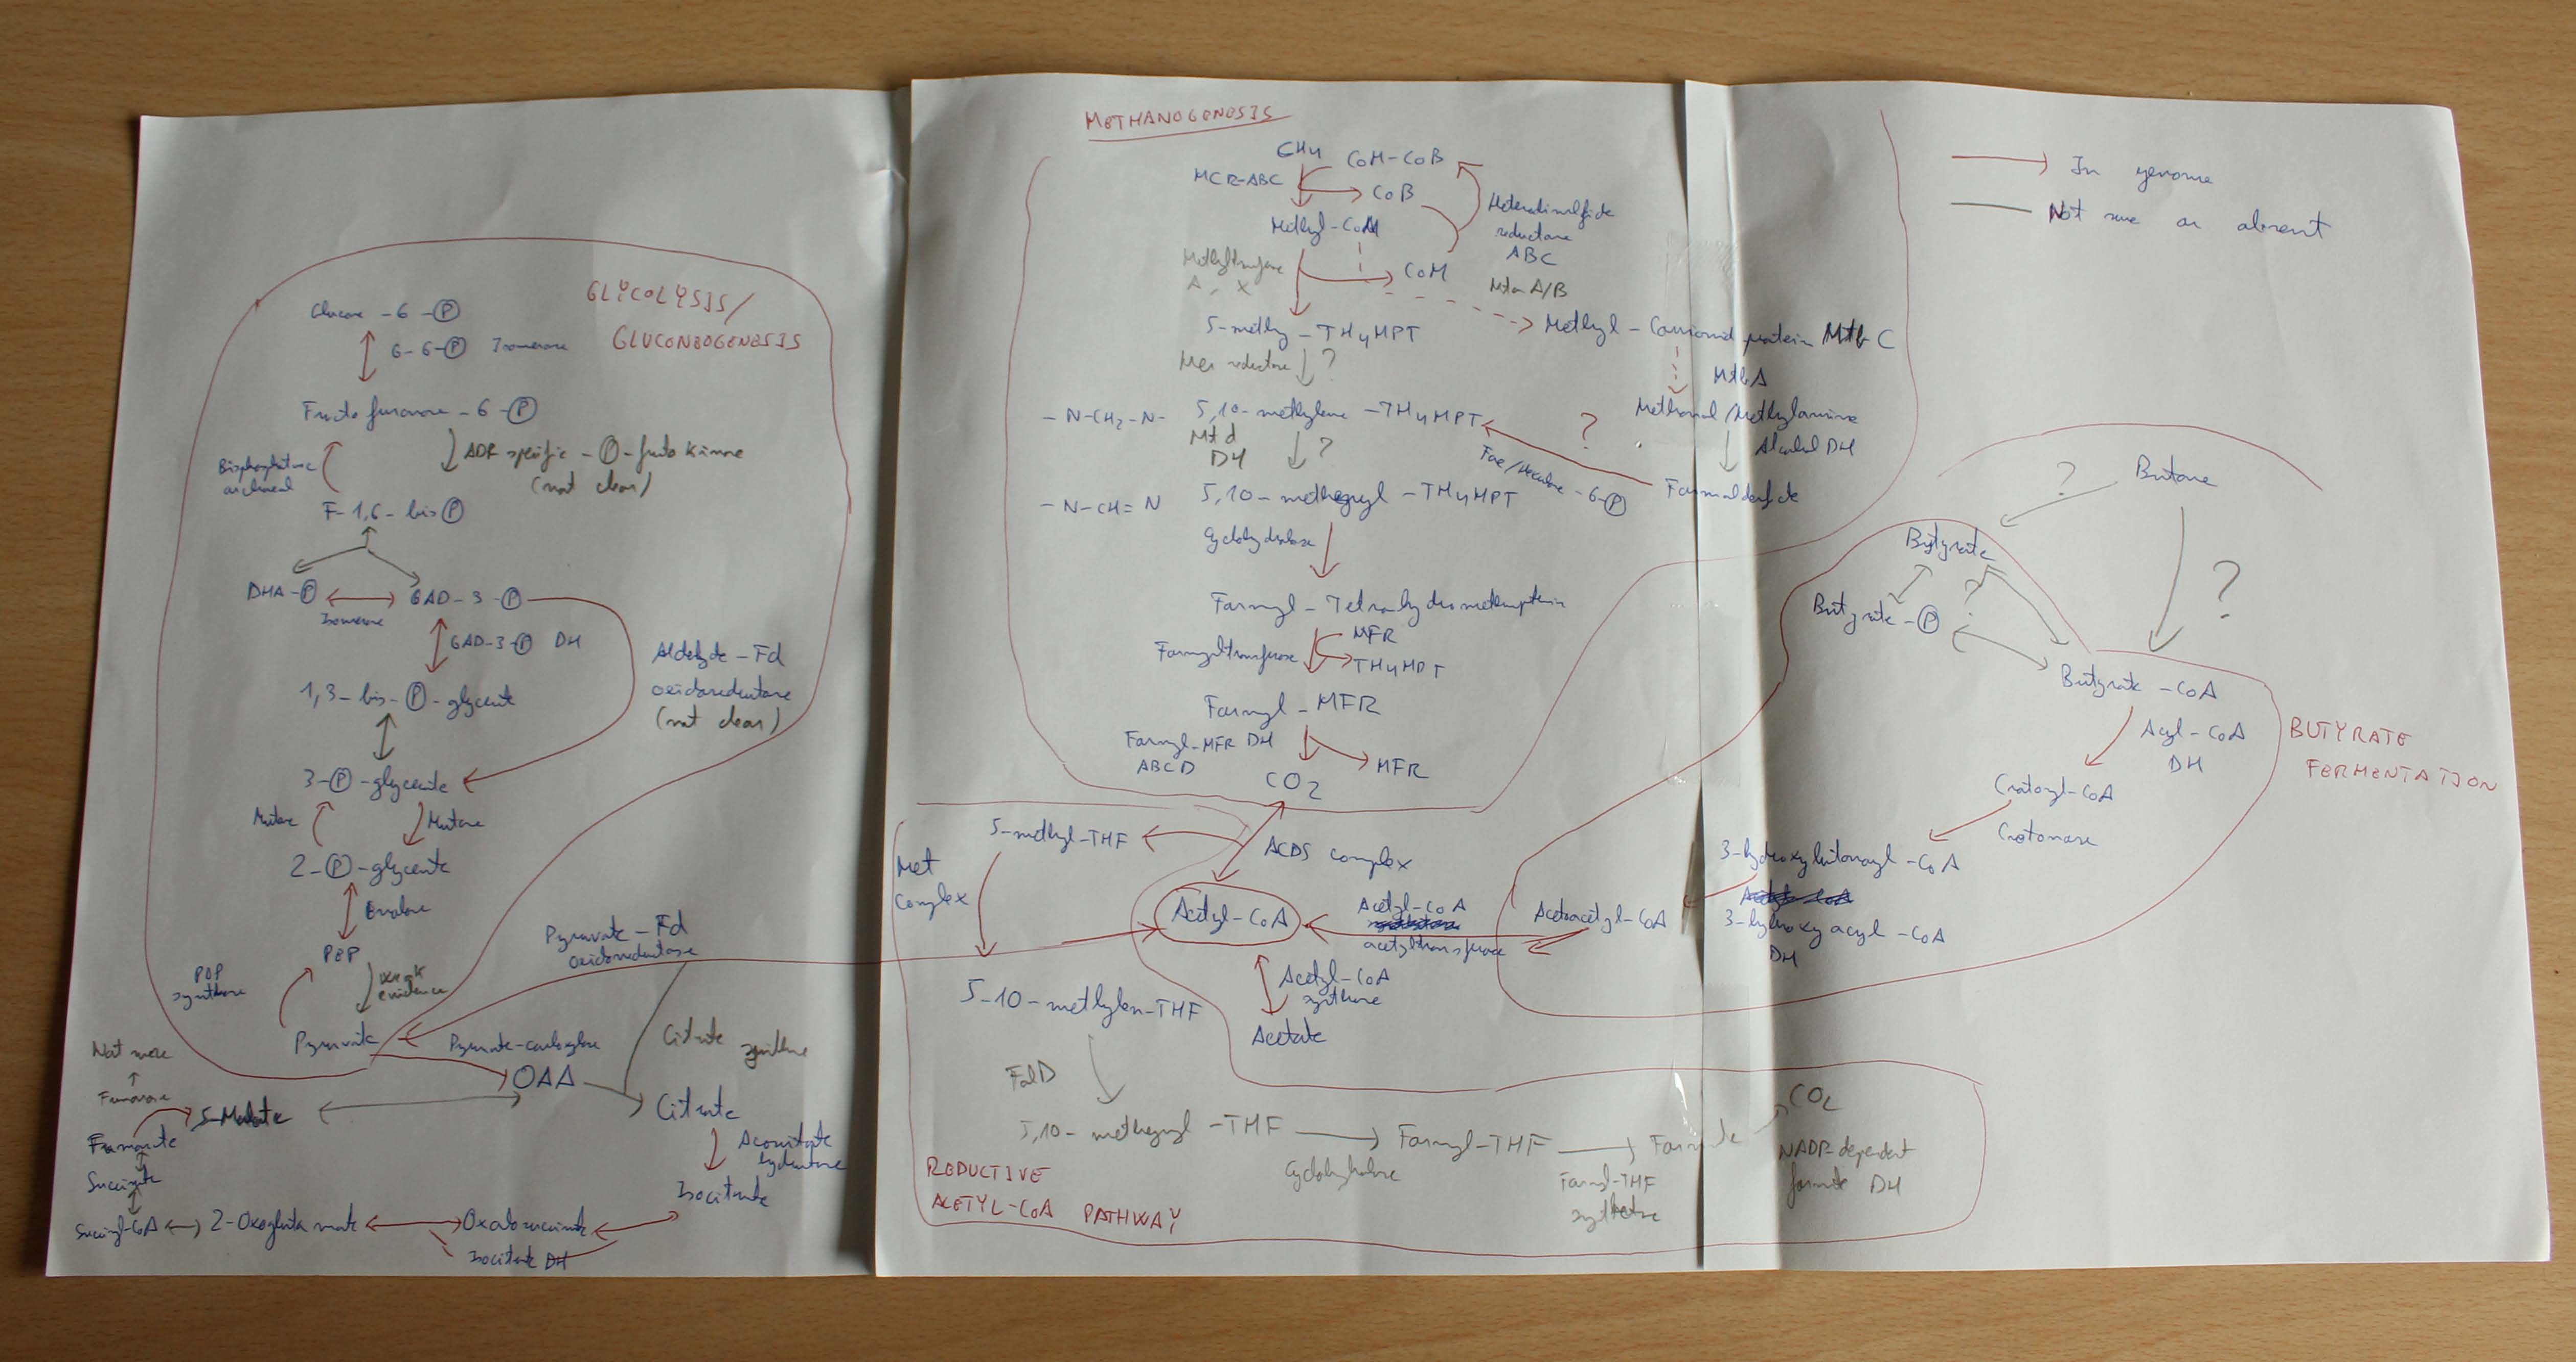 GLYCOLYSIS/
GLUCONEOGENESIS
Glucose-6-P
G-6-P Isomerase
Fructofuranose-6-P
Bisphosphatase
archaeal
ADP specific-P-fructokinase
(not clear)
F-1,6-bisP
DHA-P
GAD-3-P
Isomerase
GAD-3-P DH
Aldehyde-Fd
oxidoreductase
(not clear)
1,3-bis-P-glycerate
3-P-glycerate
Mutase
Mutase
2-P-glycerate
Enolase
PEP
PEP
synthase
weak
evidence
Pyruvate-Fd
oxidoreductase
Pyruvate
Pyruvate-carboxylase
OAA
Citrate synthase
Citrate
Aconitate
hydratase
Isocitrate
Oxalosuccinate
Isocitrate DH
2-Oxoglutarate
Succinyl-CoA
Succinate
Fumarate
Fumarase
Not sure
S-Malate
METHANOGENESIS
CH4
CoM-CoB
MCR-ABC
CoB
Methyl-CoM
Heterodisulfide
reductase
ABC
Methyltransferase
A, X
CoM
Mta A/B
5-methyl-TH4MPT
Methyl-Corrinoid protein MtbC
Mer reductase
?
MtbA
-N-CH2-N-
5,10-methylene-TH4MPT
?
Methanol/Methylamine
Mtd
DH
?
Alcohol DH
Fae/Hexulose-6-P
Formaldehyde
-N-CH=N
5,10-methenyl-TH4MPT
Cyclohydrolase
Formyl-Tetrahydromethanopterin
MFR
Formyltransferase
TH4MPT
Formyl-MFR
Formyl-MFR DH
ABCD
MFR
CO2
5-methyl-THF
ACDS complex
Met
Complex
Acetyl-CoA
Acetyl-CoA
acetyltransferase
Acetoacetyl-CoA
5-10-methylen-THF
Acetyl-CoA
synthase
Acetate
FolD
5,10-methenyl-THF
Cyclohydrolase
Formyl-THF
Formyl-THF
synthetase
Formate
CO2
NADP-dependent
formate DH
REDUCTIVE
ACETYL-CoA PATHWAY
In genome
Not sure or absent
Butane
?
Butyrate
?
?
Butyrate-P
Butyrate-CoA
Acyl-CoA
DH
BUTYRATE
FERMENTATION
Crotonyl-CoA
Crotonase
3-hydroxybutanoyl-CoA
3-hydroxyacyl-CoA
DH